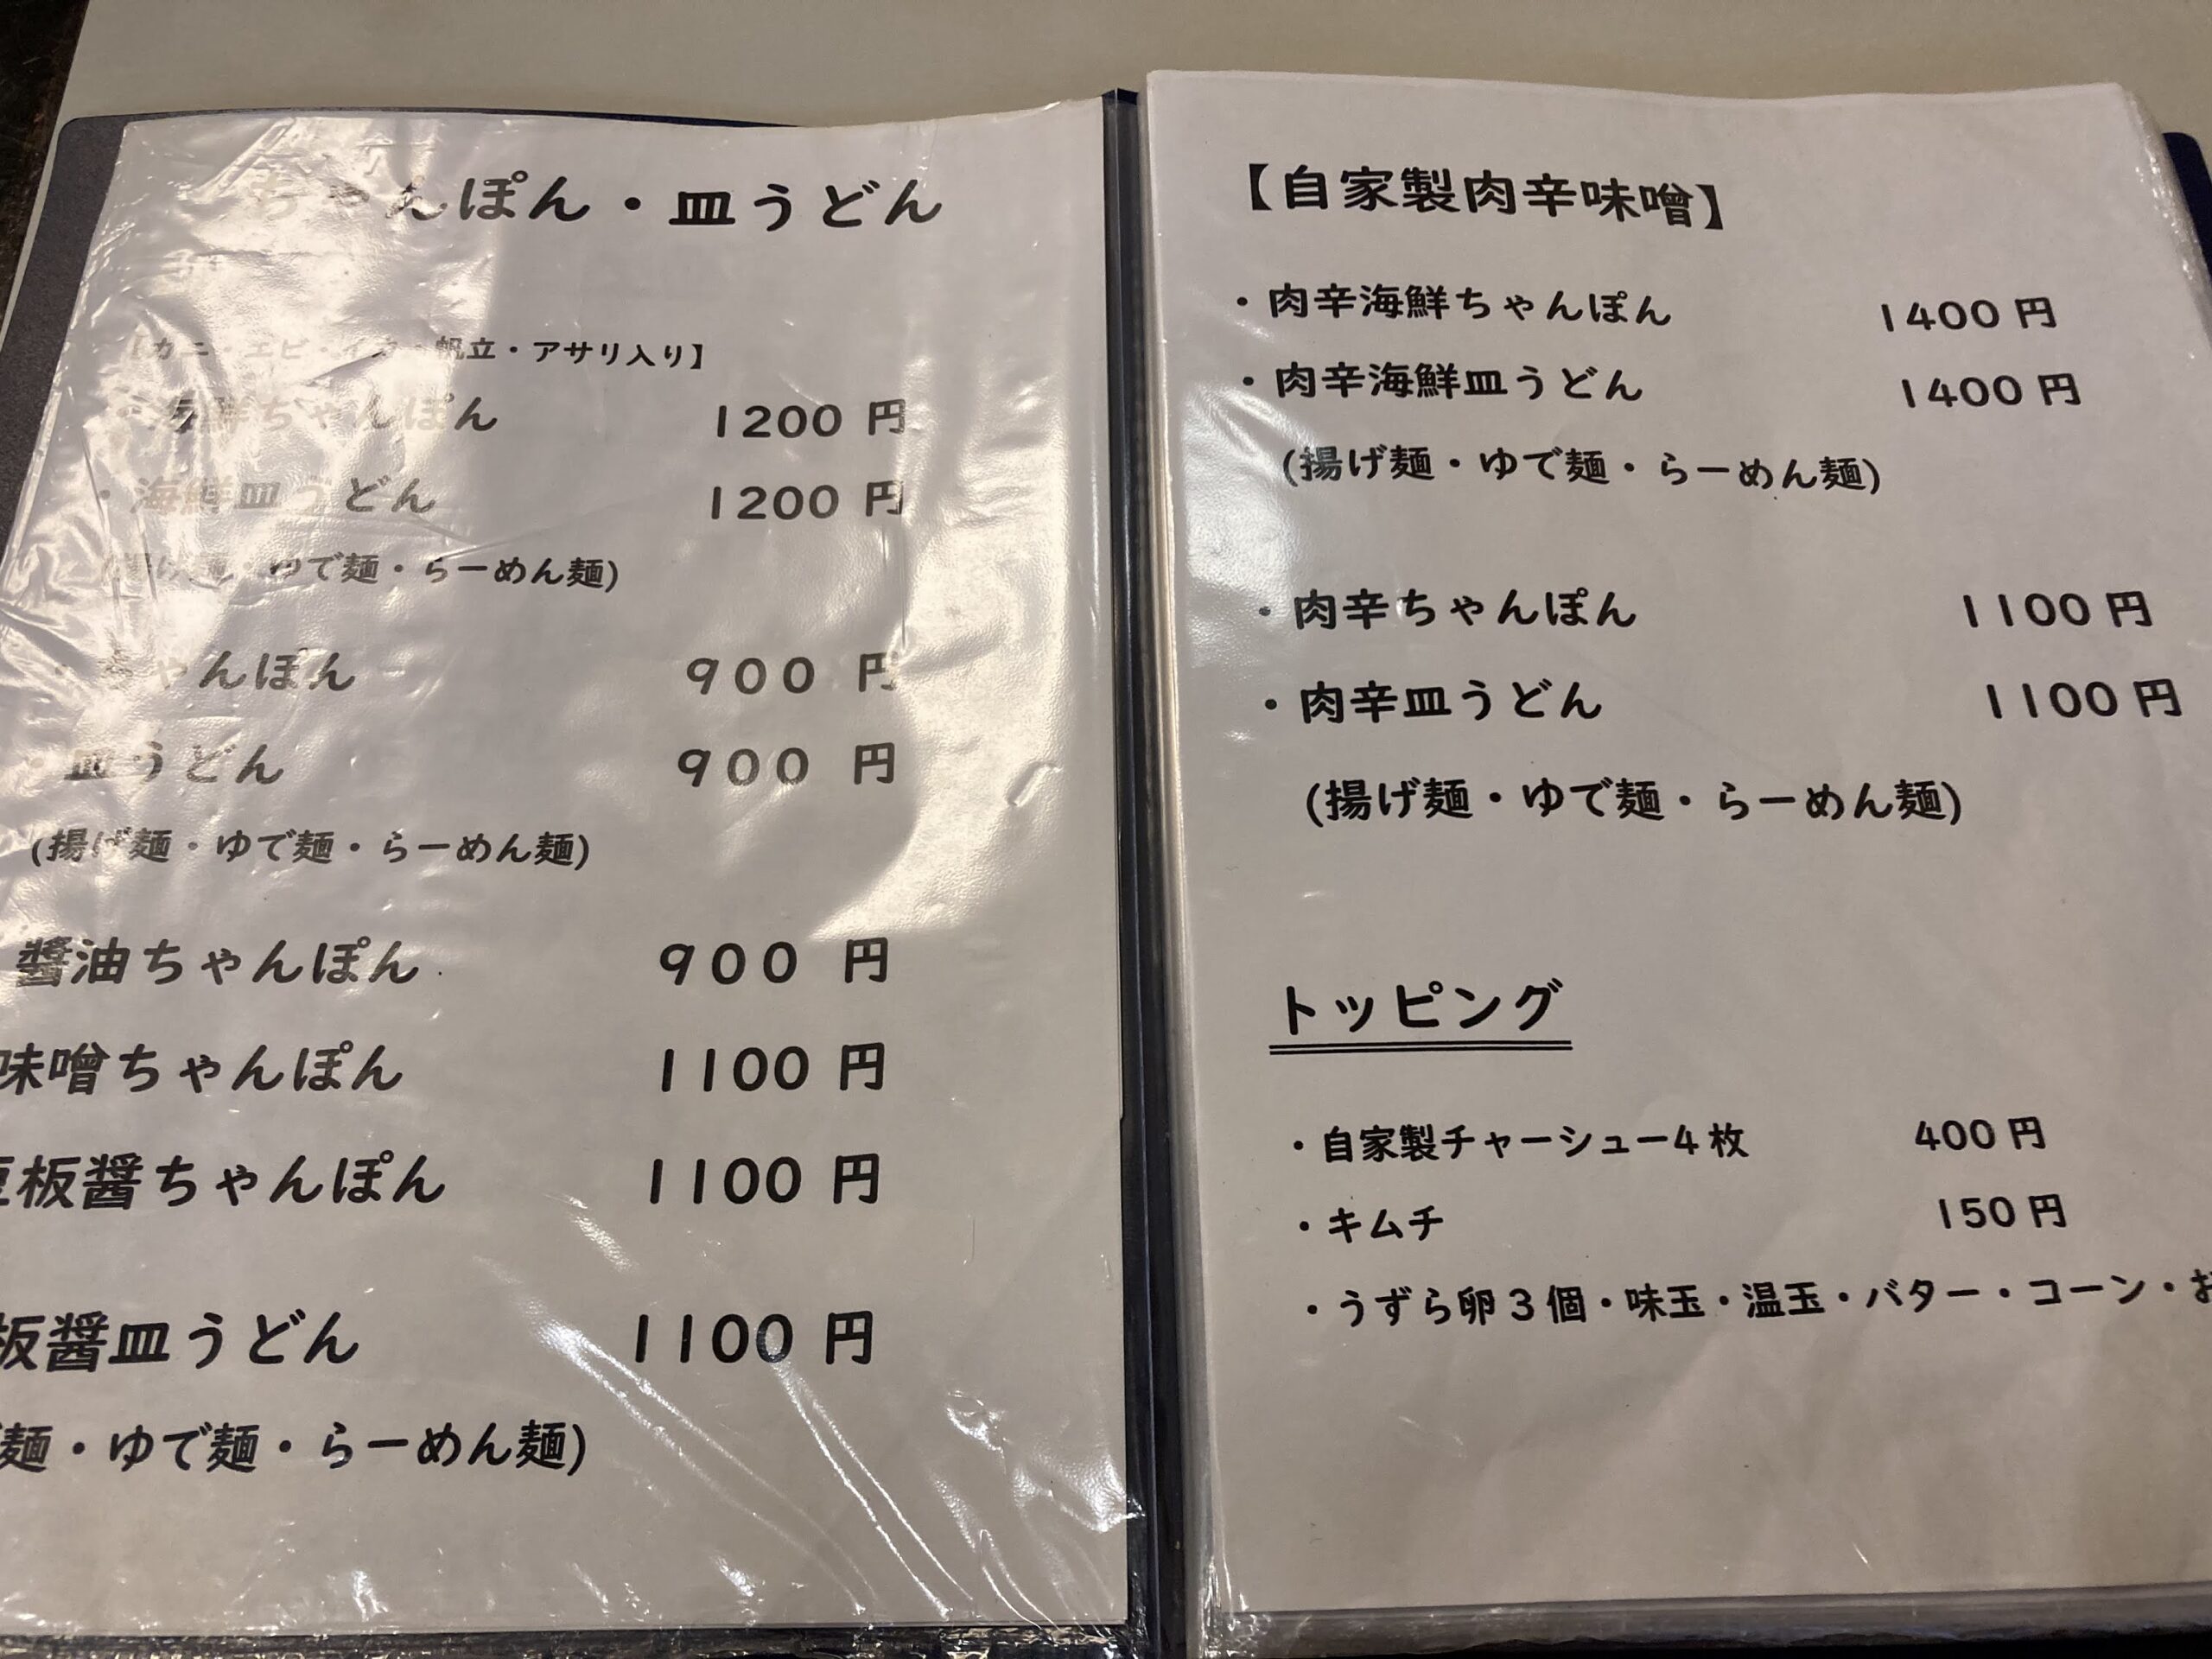 ちゃんぽん・皿うどん
【カニ・エビ・イカ・帆立・アサリ入り】
・海鮮ちゃんぽん 1200 円
・海鮮皿うどん 1200 円
(揚げ麺・ゆで麺・らーめん麺)
・ちゃんぽん 900 円
・皿うどん 900 円
(揚げ麺・ゆで麺・らーめん麺)
醬油ちゃんぽん 900 円
味噌ちゃんぽん 1100 円
板醤ちゃんぽん 1100 円
板醤皿うどん 1100 円
麺・ゆで麺・らーめん麺)
【自家製肉辛味噌】
・肉辛海鮮ちゃんぽん 1400 円
・肉辛海鮮皿うどん 1400 円
(揚げ麺・ゆで麺・らーめん麺)
・肉辛ちゃんぽん 1100 円
・肉辛皿うどん 1100 円
(揚げ麺・ゆで麺・らーめん麺)
トッピング
・自家製チャーシュー4 枚 400 円
・キムチ 150 円
・うずら卵 3 個・味玉・温玉・バター・コーン・